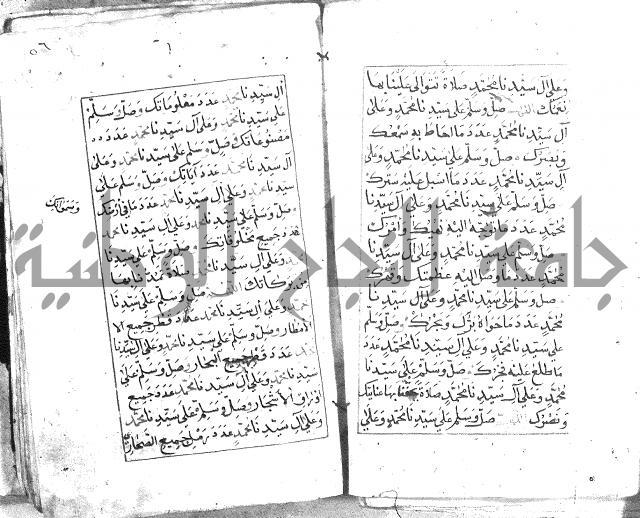 وعلى آل سيدنا محمد صلاة تتوالى علينا بها
صل وسلم على سيدنا محمد وعلى
آل سيدنا محمد عدد ما احاط به سمعك
وبصرك صل وسلم على سيدنا محمد وعلى
آل سيدنا محمد عدد ما اسبل عليه سترك
صل وسلم على سيدنا محمد وعلى آل سيدنا
محمد عدد ما توجه اليه نهيك وامرك
صل وسلم على سيدنا محمد وعلى آل سيدنا
محمد عدد ما وصل اليه
صل وسلم على سيدنا محمد وعلى آل سيدنا
محمد عدد ما حواه برك وبحرك صل وسلم
على سيدنا محمد وعلى آل سيدنا محمد عدد
ما طلع عليه فجرك صل وسلم على سيدنا
محمد وعلى آل سيدنا محمد صلاة تحفنا بها عنايتك
ونصرك صل وسلم على سيدنا محمد وعلى
٥٦
آل سيدنا محمد عدد معلوماتك وصل وسلم
على سيدنا محمد وعلى آل سيدنا محمد عدد
مصنوعاتك صل وسلم على سيدنا محمد وعلى
آل سيدنا محمد عدد وصل وسلم على
سيدنا محمد وعلى آل سيدنا محمد عدد ما في ارضك
وسمواتك
صل وسلم على سيدنا محمد وعلى آل سيدنا محمد
عدد جميع مخلوقاتك صل وسلم على سيدنا
محمد وعلى آل سيدنا محمد صلاة بها
من بركاتك صل وسلم على سيدنا
محمد وعلى آل سيدنا محمد عدد قطر جميع الا
مطار وصل وسلم على سيدنا محمد وعلى آل سيدنا
محمد عدد جميع البحار وصل وسلم على
سيدنا محمد وعلى آل سيدنا محمد عدد جميع
اوراق الاشجار وصل وسلم على سيدنا محمد
وعلى آل سيدنا محمد عدد رمل جميع الصحار
جامعة النجاح الوطنية